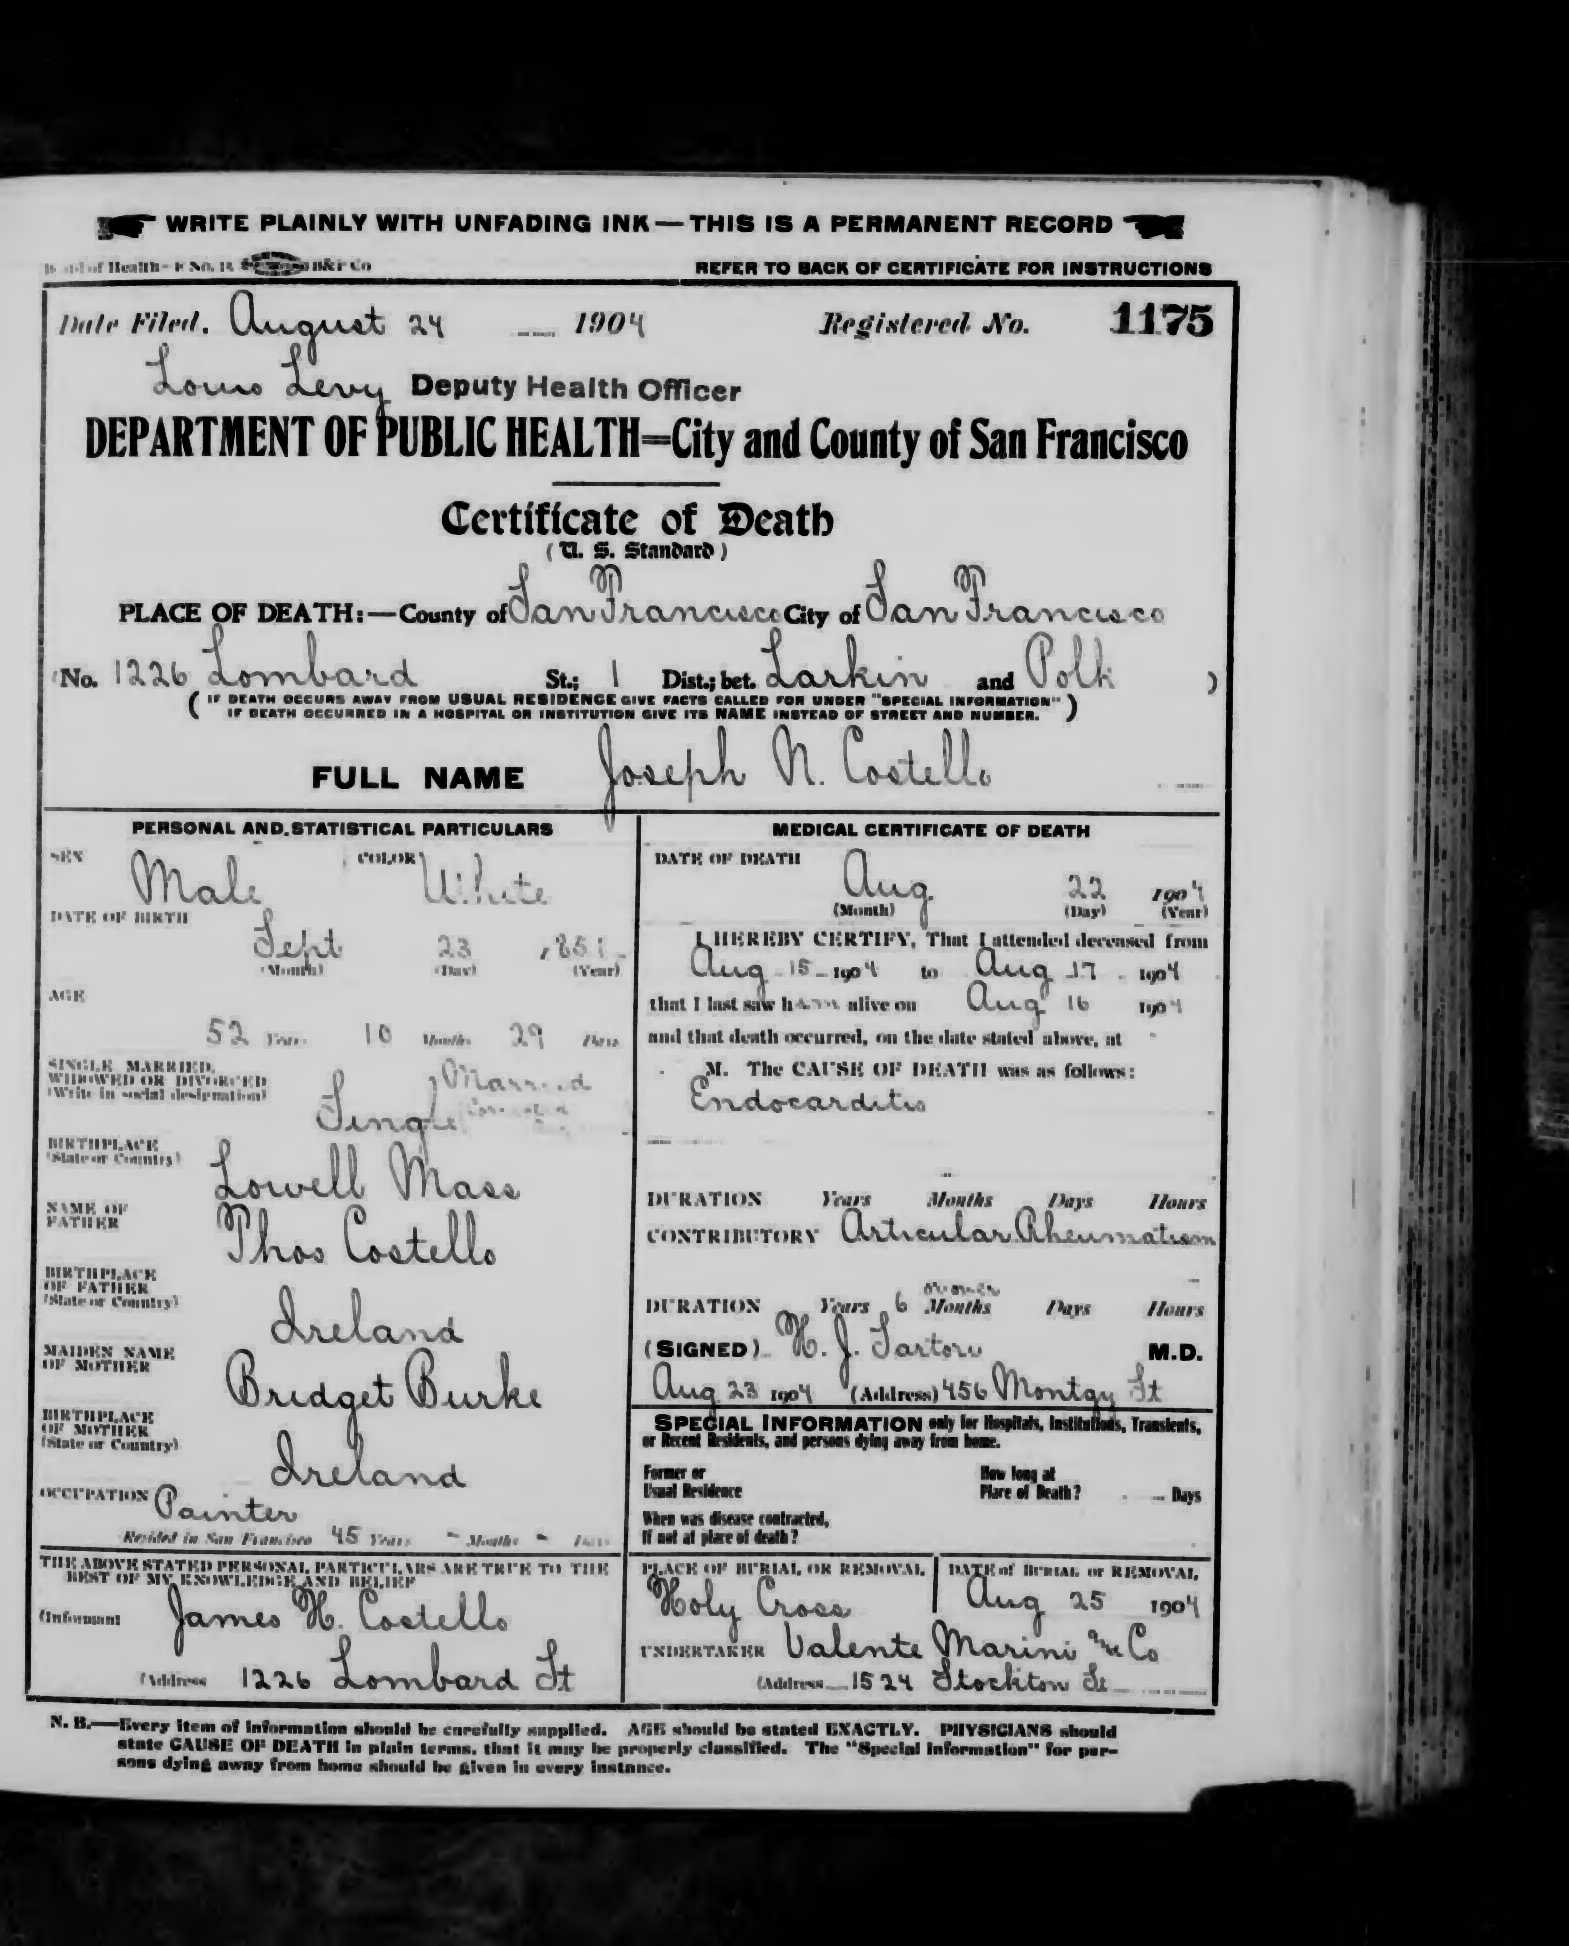 WRITE PLAINLY WITH UNFADING INK — THIS IS A PERMANENT RECORD
Board of Health - F No. 15 B&P Co
REFER TO BACK OF CERTIFICATE FOR INSTRUCTIONS
Date Filed, August 24 1904 Registered No. 1175
Louis Levy Deputy Health Officer
DEPARTMENT OF PUBLIC HEALTH=City and County of San Francisco
Certificate of Death
(U. S. Standard)
PLACE OF DEATH:—County of San Francisco City of San Francisco
(No. 1226 Lombard St.; 1 Dist.; bet. Larkin and Polk )
( IF DEATH OCCURS AWAY FROM USUAL RESIDENCE GIVE FACTS CALLED FOR UNDER "SPECIAL INFORMATION" )
( IF DEATH OCCURRED IN A HOSPITAL OR INSTITUTION GIVE ITS NAME INSTEAD OF STREET AND NUMBER. )
FULL NAME Joseph N. Costello
PERSONAL AND STATISTICAL PARTICULARS
SEX Male COLOR White
DATE OF BIRTH
Sept 23 1851
(Month) (Day) (Year)
AGE
52 Years 10 Months 29 Days
SINGLE, MARRIED,
WIDOWED OR DIVORCED
(Write in social designation)
Married
Single
BIRTHPLACE
(State or Country)
Lowell Mass
NAME OF
FATHER
Thos Costello
BIRTHPLACE
OF FATHER
(State or Country)
Ireland
MAIDEN NAME
OF MOTHER
Bridget Burke
BIRTHPLACE
OF MOTHER
(State or Country)
Ireland
OCCUPATION Painter
Resided in San Francisco 45 Years - Months - Days
THE ABOVE STATED PERSONAL PARTICULARS ARE TRUE TO THE
BEST OF MY KNOWLEDGE AND BELIEF
(Informant James H. Costello
(Address 1226 Lombard St
MEDICAL CERTIFICATE OF DEATH
DATE OF DEATH
Aug 22 1904
(Month) (Day) (Year)
I HEREBY CERTIFY, That I attended deceased from
Aug 15 1904 to Aug 17 1904
that I last saw him alive on Aug 16 1904
and that death occurred, on the date stated above, at -
M. The CAUSE OF DEATH was as follows:
Endocarditis
DURATION Years Months Days Hours
CONTRIBUTORY Articular Rheumatism
DURATION Years 6 Months Days Hours
(SIGNED) H. J. Sartori M.D.
Aug 23 1904 (Address) 456 Montgy St
SPECIAL INFORMATION only for Hospitals, Institutions, Transients,
or Recent Residents, and persons dying away from home.
Former or
Usual Residence
How long at
Place of Death? Days
When was disease contracted,
If not at place of death?
PLACE OF BURIAL OR REMOVAL
Holy Cross
DATE of BURIAL or REMOVAL
Aug 25 1904
UNDERTAKER Valente Marini and Co
(Address 1524 Stockton St
N. B.—Every item of information should be carefully supplied. AGE should be stated EXACTLY. PHYSICIANS should
state CAUSE OF DEATH in plain terms, that it may be properly classified. The "Special Information" for per-
sons dying away from home should be given in every instance.